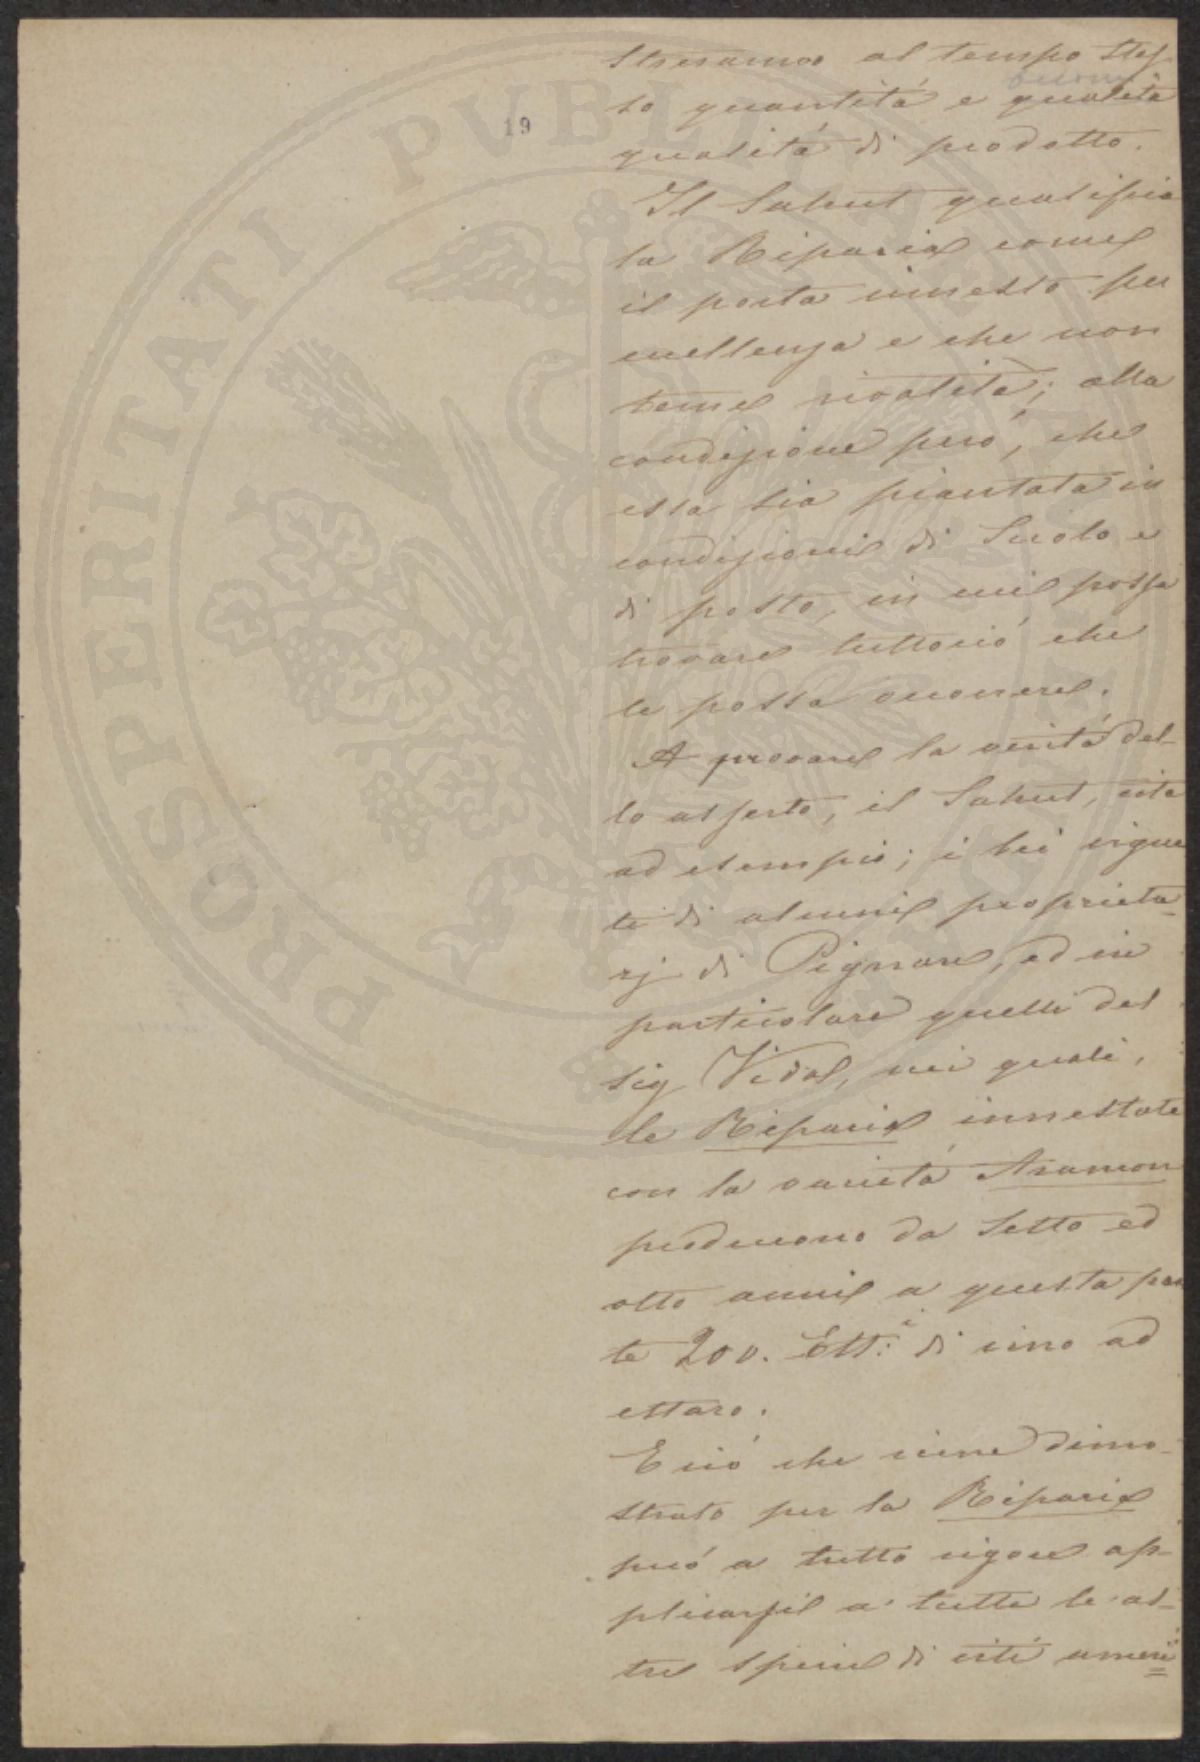 19
streremo al tempo stes
so quantità e qualità
buona
qualità di prodotto.
Il Sahut qualifica
la Riparia come
il porta innesto per
eccellenza e che non
teme rivalità; alla
condizione però, che
essa sia piantata in
condizioni di Suolo e
di posto, in cui possa
trovare tuttociò che
le possa occorrere.
A provare la verità del-
lo asserto, il Sahut, cita
ad esempio; i bei vigne
ti di alcuni proprieta-
rj di Pignan, ed in
particolare quelli del
sig Vidal, nei quali,
le Riparia innestate
con la varietà Aramon
producono da sette ed
otto anni a questa par
te 200. Ett:i di vino ad
ettaro.
E ciò che viene dimo-
strato per la Riparia
può a tutto rigore ap-
plicarsi a tutte le al-
tre specie di viti ameri
PROSPERITATI PVBLICAE